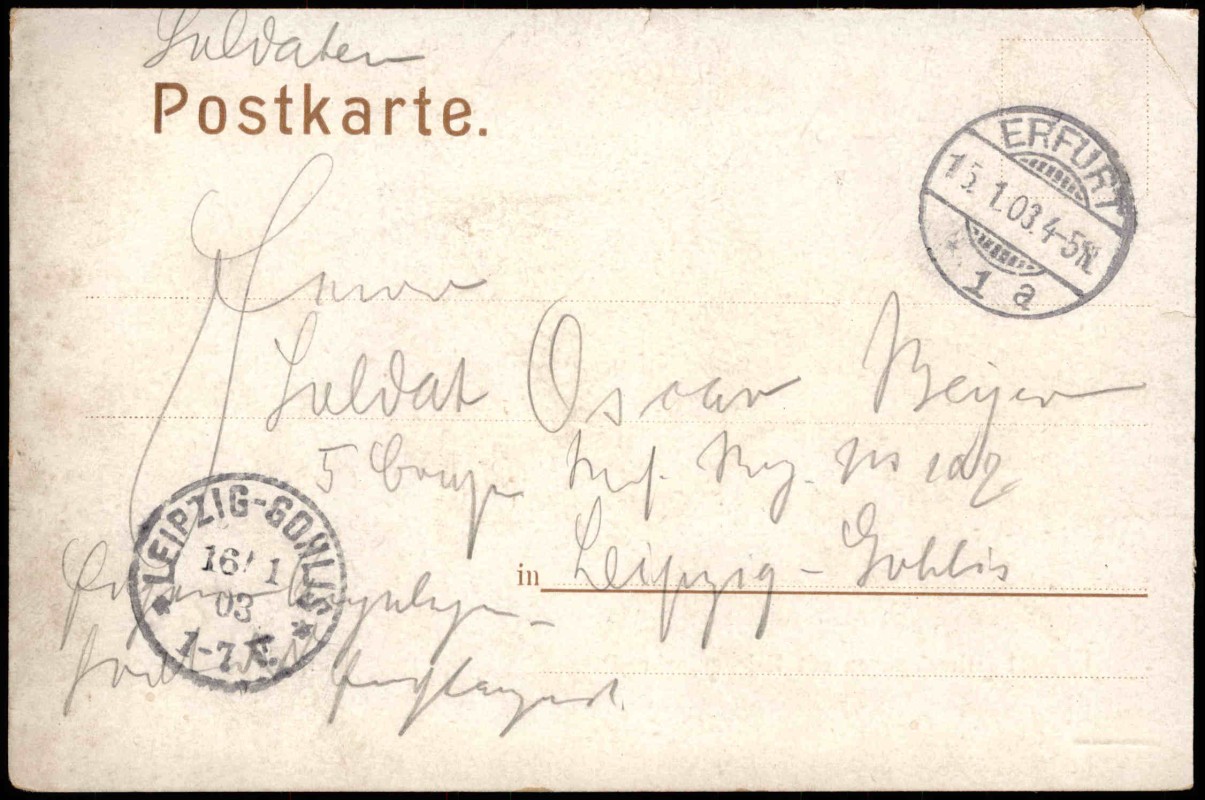 Soldaten
Postkarte.
ERFURT
15.1.03.4-5N.
* 1 a
Herrn
Soldat Oscar Beyer
5 Comp. Inf. Reg. No 107
in Leipzig-Gohlis
LEIPZIG-GOHLIS
16/1
03
1-7